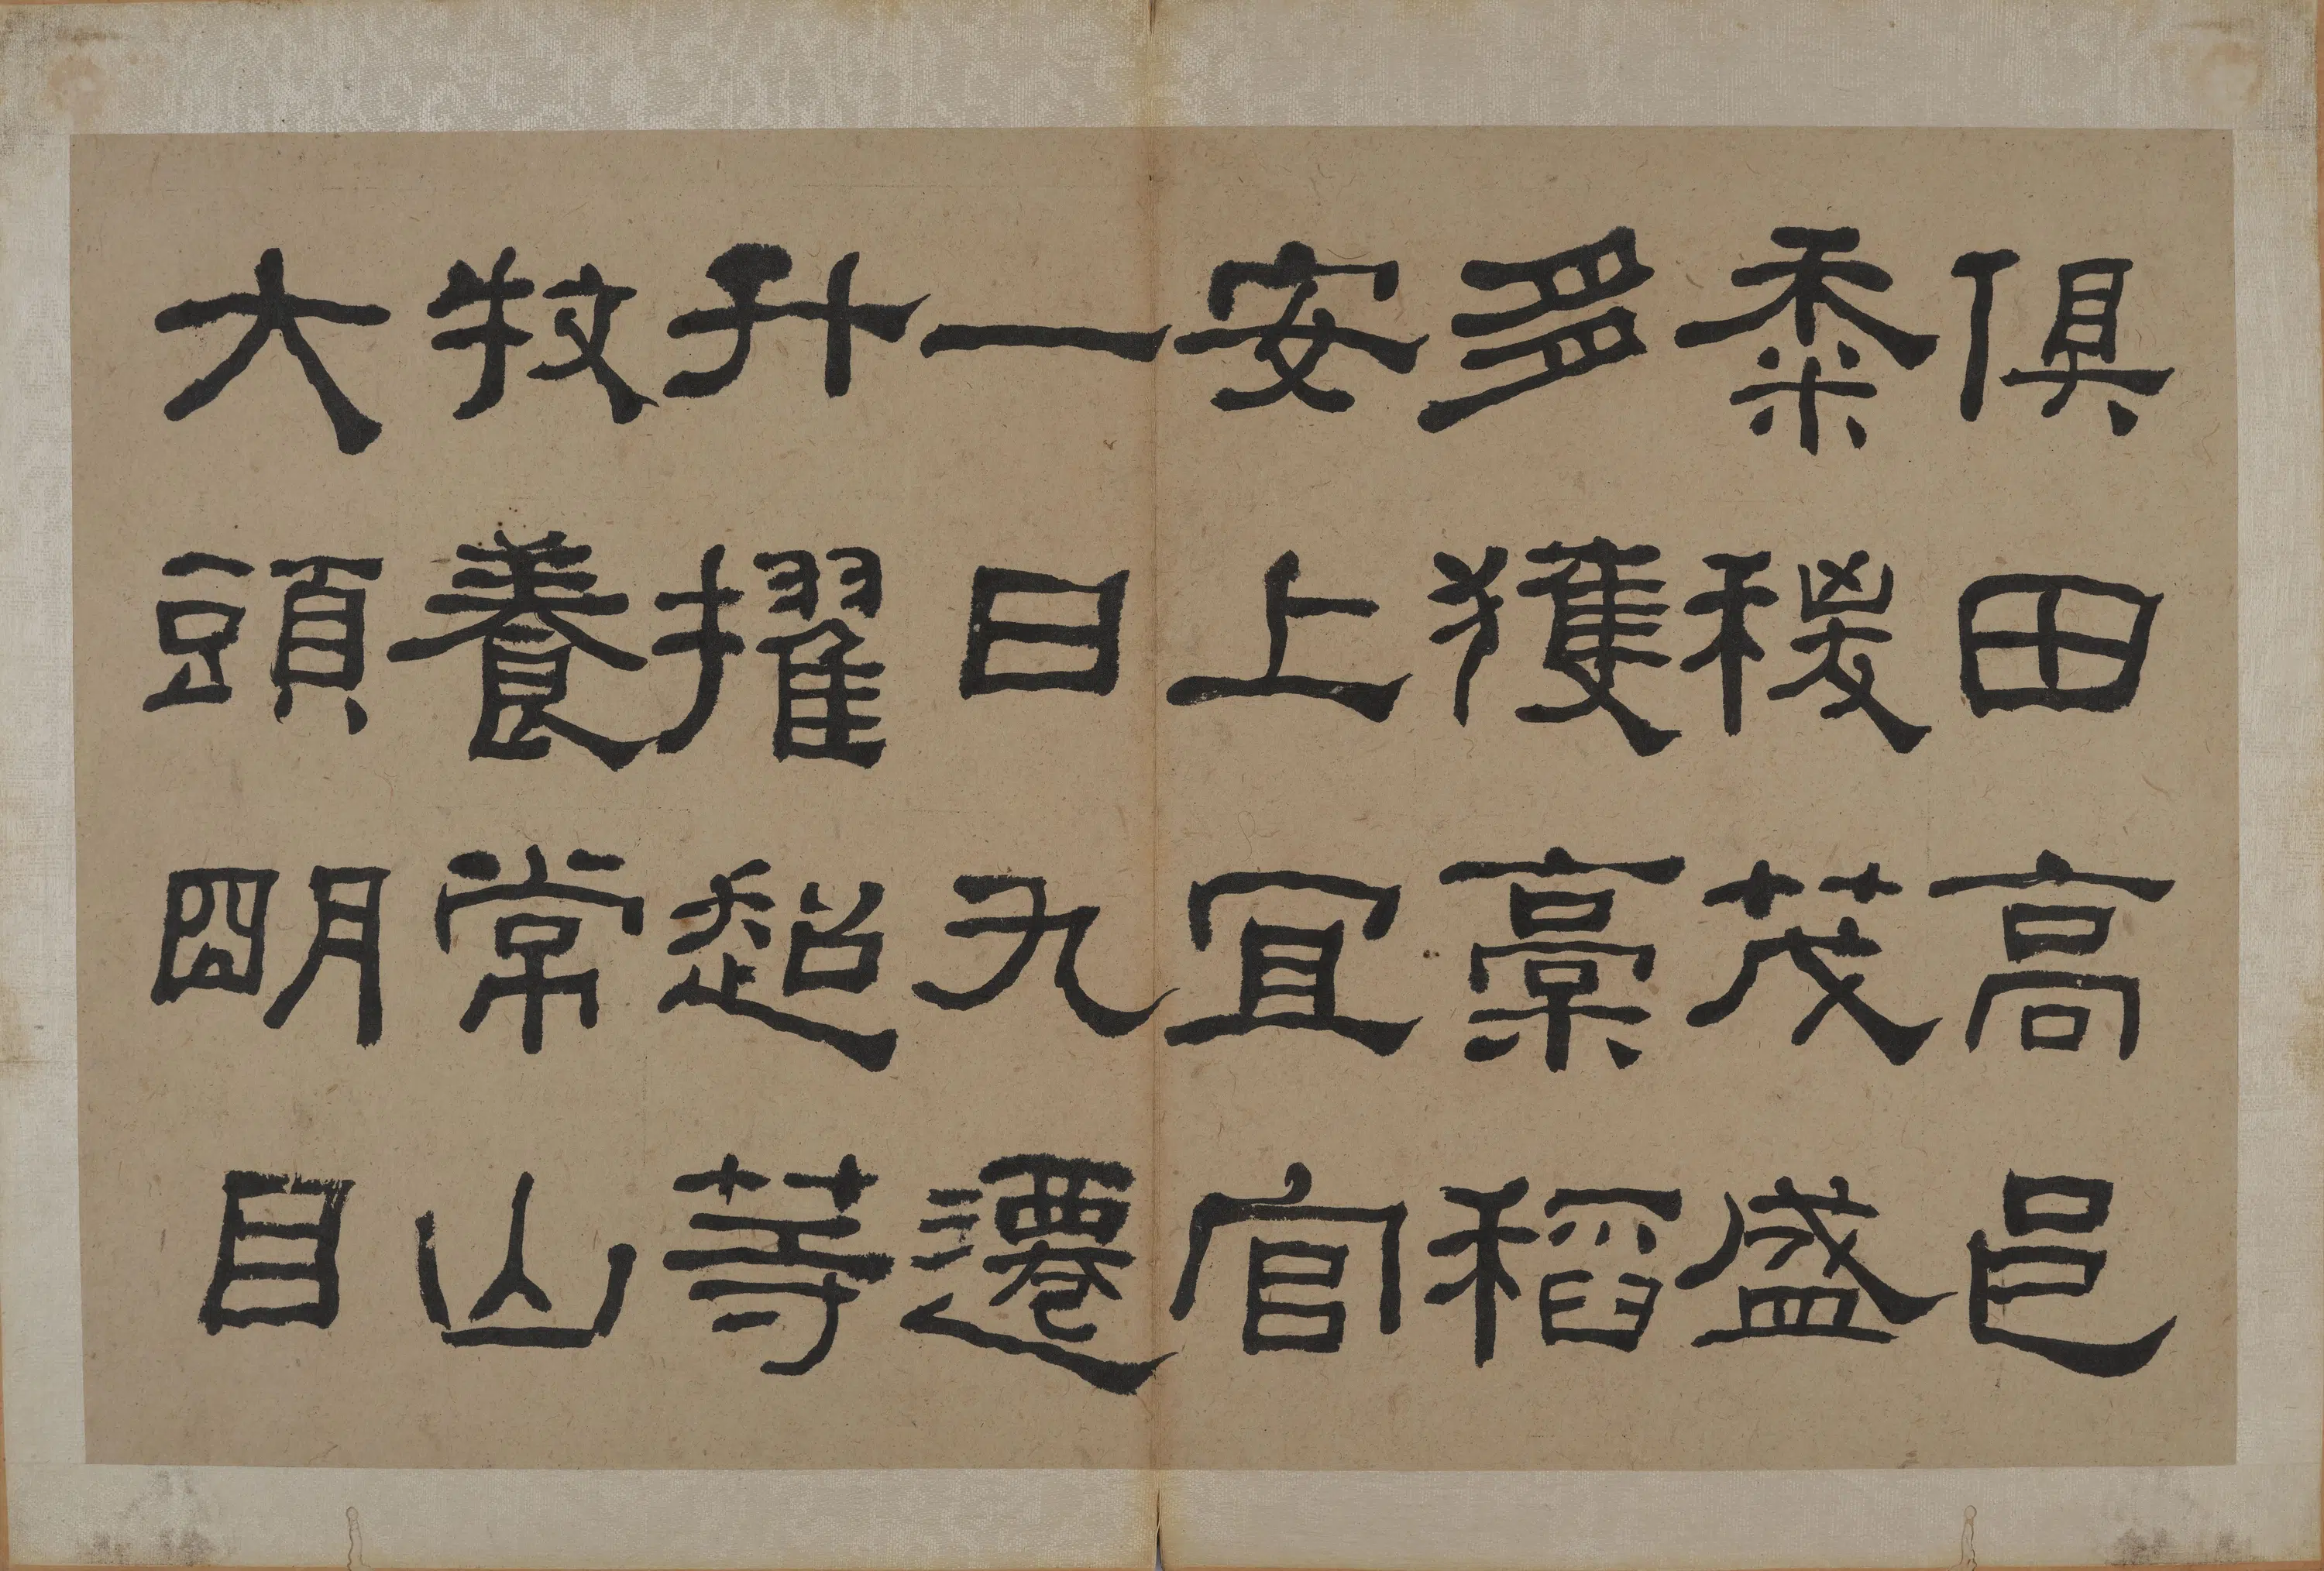 俱田高邑
黍稷茂盛
多獲槀稻
安上宜官
一日九遷
升擢超等
牧養常山
大頭明目